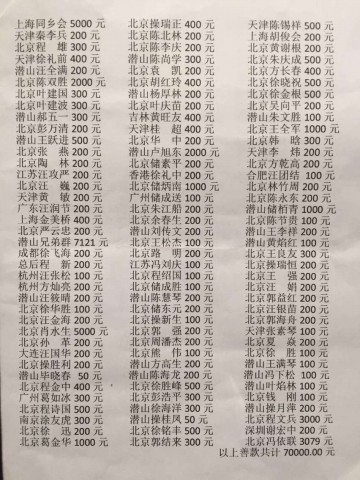 上海同乡会 5000 元 北京操瑞正 400 元 天津陈锡祥 500 元
天津秦李兵 200 元 北京陈北林 200 元 上海胡俊会 200 元
北京程 雄 300 元 北京陈李庆 200 元 北京黄谢根 200 元
天津徐礼前 400 元 潜山陈尚学 300 元 北京朱庆成 500 元
潜山汪全满 200 元 北京袁 凯 200 元 北京方长春 400 元
北京陈双胜 2000 元 北京胡红玲 400 元 北京徐晓祝 500 元
北京叶建国 300 元 潜山杨厚林 200 元 北京徐金根 500 元
北京叶建波 300 元 北京叶庆苗 200 元 北京吴向平 200 元
潜山郝五一 300 元 吉林黄旺友 400 元 潜山朱文胜 100 元
北京彭万清 200 元 天津桂 超 400 元 北京王全军 1000 元
潜山王跃进 500 元 北京华 中 200 元 北京韩 晗 300 元
北京张 燕 200 元 潜山卢旭东 2000 元 天津李 炜 300 元
北京陶 林 200 元 北京储素平 200 元 北京方乾高 200 元
江苏汪玫严 200 元 香港徐礼中 200 元 合肥汪团结 100 元
北京汪 巍 200 元 北京储炳南 1000 元 北京林竹周 200 元
天津黄 敏 200 元 广州储成送 100 元 北京陈永东 200 元
广东汪润节 200 元 北京朱江船 200 元 潜山储栢青 1000 元
上海金美桥 400 元 北京余春生 200 元 北京陈节资 100 元
北京严云忠 200 元 潜山刘传文 200 元 潜山王李祥 200 元
潜山兄弟群 7121 元 北京王松杰 100 元 潜山黄焰红 100 元
成都徐飞海 200 元 北京路 明 200 元 北京王良友 300 元
总后程 新 200 元 江苏冯刘庆 100 元 北京操瑞恒 200 元
杭州汪张松 100 元 北京程绍国 100 元 北京王 强 200 元
杭州方灿亮 200 元 北京储成胜 100 元 北京汪 娟 200 元
潜山汪筱晴 200 元 潜山陈慧琴 200 元 北京郭益红 200 元
北京徐华胜 100 元 北京储东元 200 元 北京汪银苗 200 元
北京汪金海 200 元 北京操新生 100 元 北京郭海舟 200 元
北京肖水生 5000 元 北京郭 强 200 元 天津张素琴 100 元
北京孙 革 200 元 北京周潘杰 200 元 北京夏 焱 200 元
大连汪国华 200 元 北京熊 伟 100 元 北京徐 胜 100 元
北京操胜利 200 元 潜山方高生 200 元 潜山王满琴 100 元
潜山毕晓春 50 元 潜山陈海龙 200 元 潜山冯下松 100 元
北京程金中 400 元 北京徐胜峰 500 元 潜山叶焰林 100 元
广州葛如冰 300 元 北京彭浩平 300 元 北京钱 刚 100 元
北京程诗国 500 元 潜山徐海洋 300 元 潜山操月萍 200 元
南京涂友虎 300 元 潜山操桂凤 50 元 北京程文兵 3000 元
北京徐 迅 200 元 北京徐铭丰 500 元 深圳谢宏中 200 元
北京葛金华 1000 元 北京郭结来 300 元 北京冯依联 3079 元
以上善款共计 70000.00 元